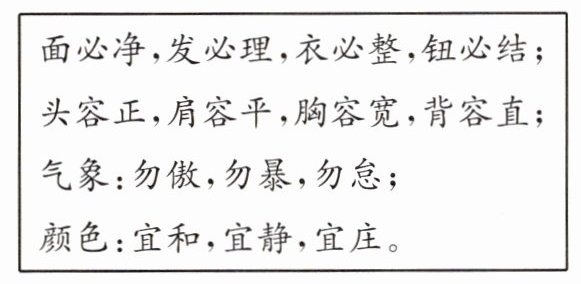 面必净,发必理,衣必整,钮必结;
头容正,肩容平,胸容宽,背容直;
气象:勿傲,勿暴,勿怠;
颜色:宜和,宜静,宜庄。